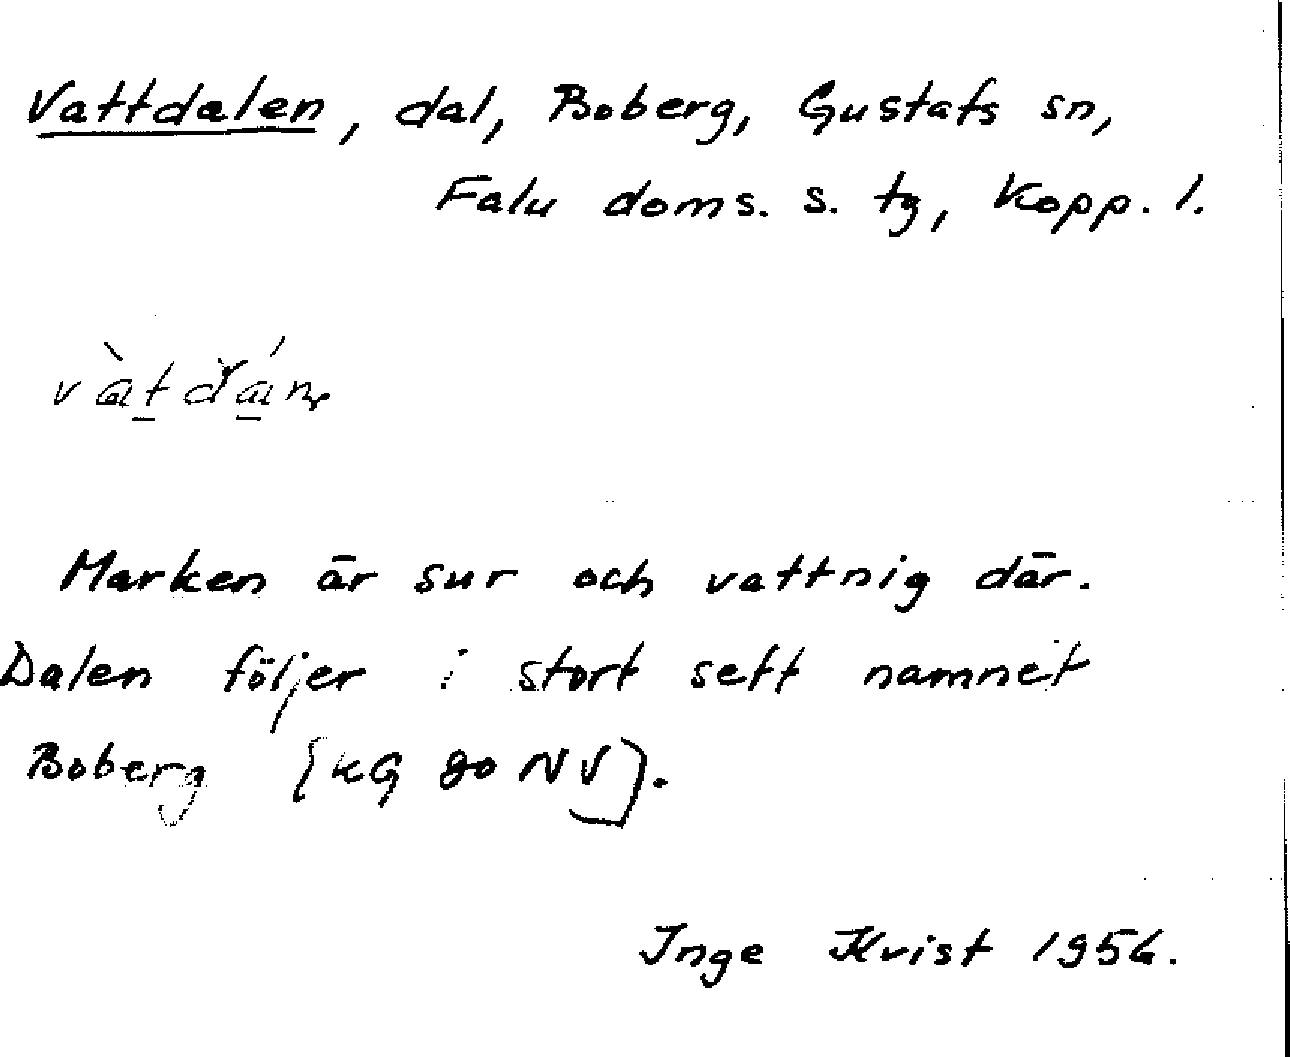 Vattdalen, dal, Boberg, Gustafs sn,
Falu doms. s. tg, Kopp. l.
Marken är sur och vattnig där.
Dalen följer i stort sett namnet
Boberg [KG go NV].
Inge Kvist 1956.